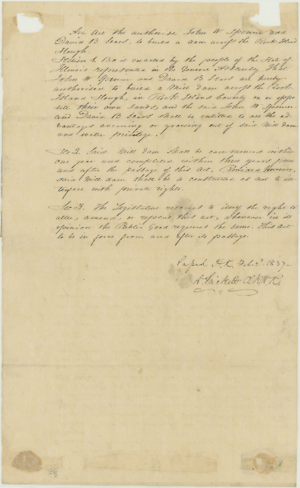 An Act to authorise John W Spencer and
David B Sears to build a dam across the Rock Island
Slough
Section 1. Be it enacted by the people of the State of
Illinois represented in the General Assembly, That
John W Spencer and David B Sears are hereby
authorised to build a Mill Dam across the Rock
Island Slough, in Rock Island County
their own lands and the said John W Spencer
and David B Sears shall be entitled to all the ad-
vantages growing out of said Mill Dam
and water privilege.
Sec 2. Said Mill Dam shall be commenced within
one year and completed within three years from
and after the passage of this Act, Provided however,
said Mill dam shall be so constructed as not to in-
terfere with private rights.
Sec 3. The Legislature reserves to itself the right to
alter, amend, or repeal this act, whenever in its
opinion the Public Good requires the same. This act
to be in force from and after its passage.
Passed H.R. Feb. 1837.